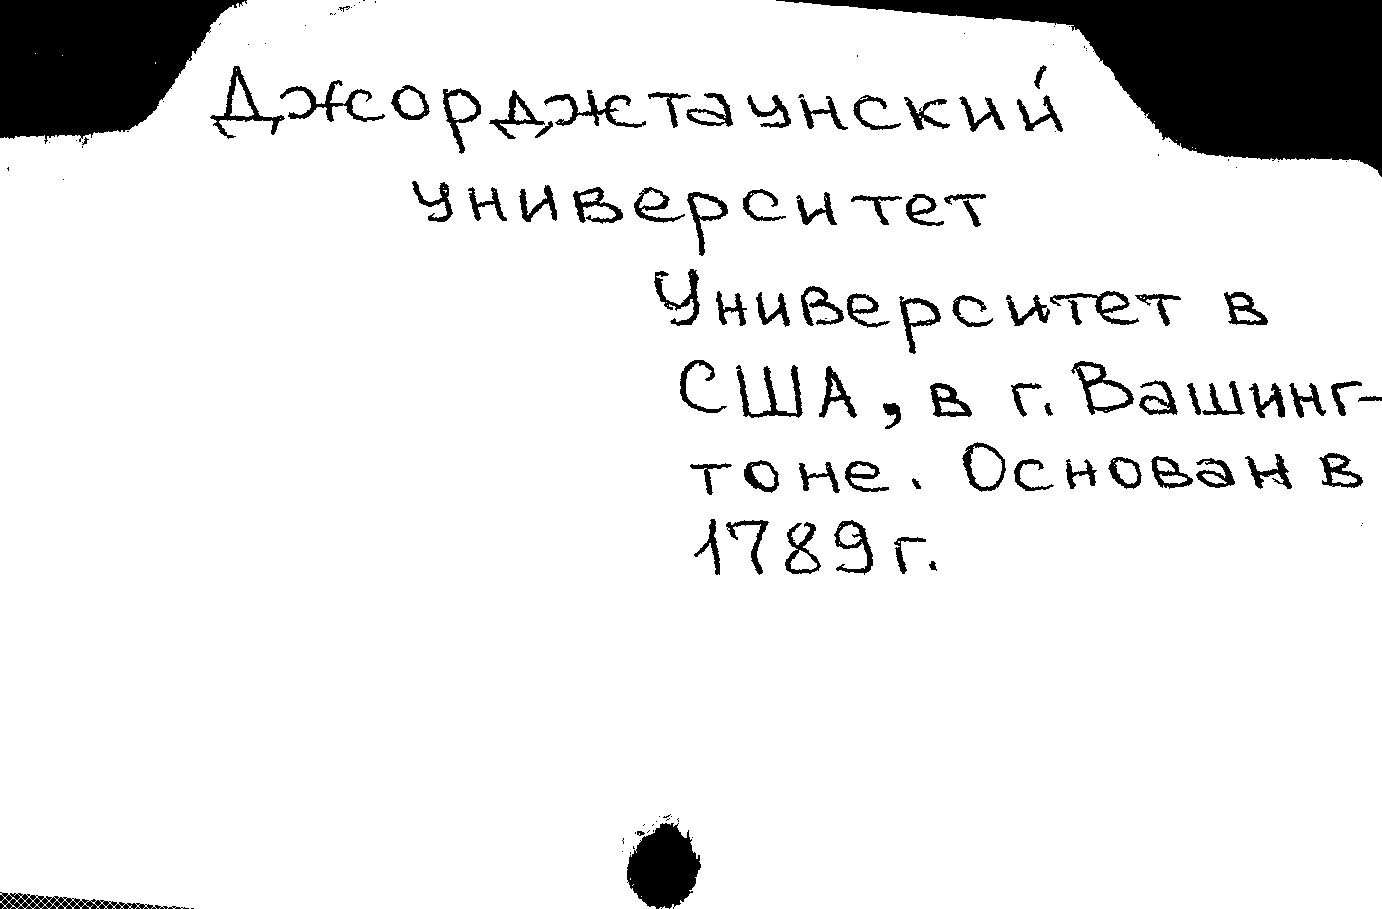 Джорджтаунский
университет
Университет в
США, в г. Вашинг-
тоне. Основан в
1789 г.